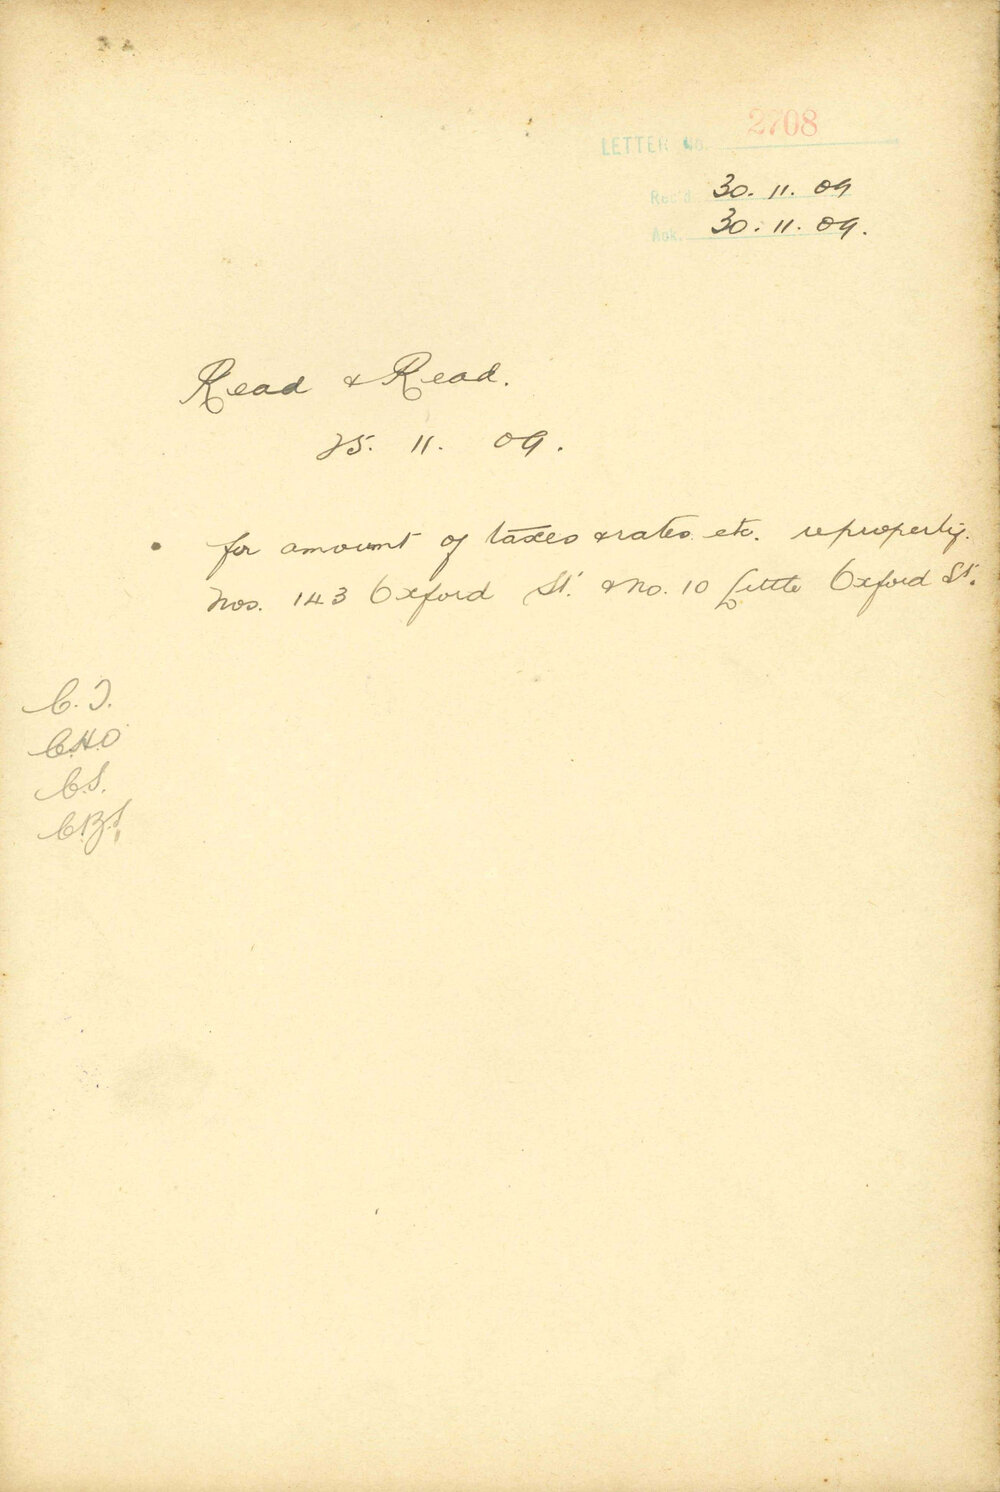 LETTER No. 2708
Rec'd 30. 11. 09
Ack. 30. 11. 09.
Read & Read.
25. 11. 09.
for amount of taxes & rates etc. re property.
Nos. 143 Oxford St. & No. 10 Little Oxford St.
C. T.
C.H.O
C.S.
C.B.S,